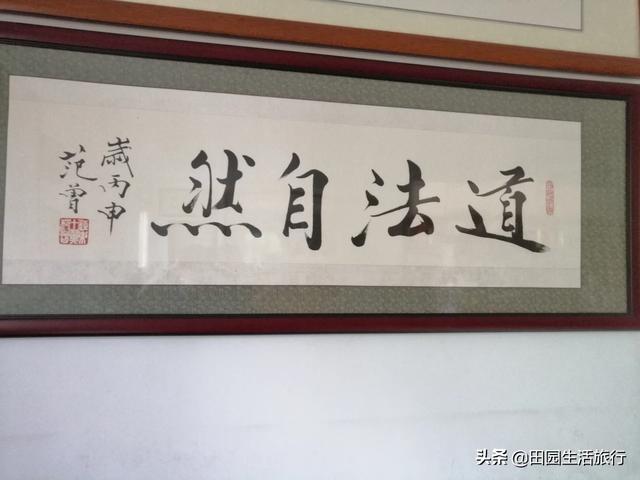 道法自然
岁丙申
范曾
头条 @田园生活旅行